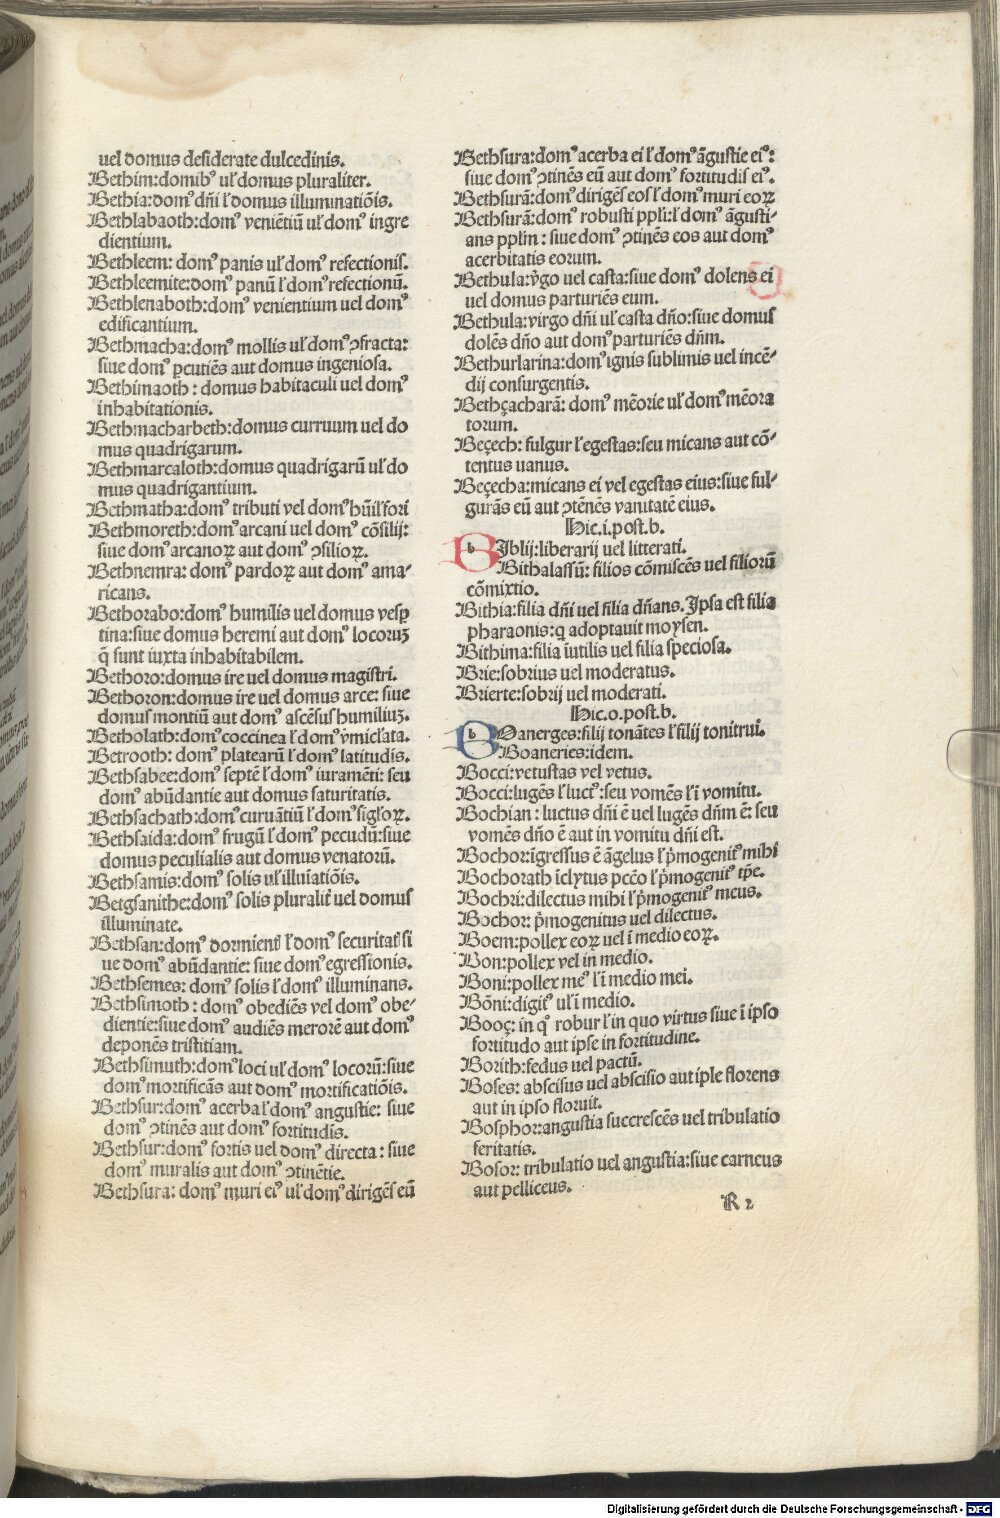 uel domus desiderate dulcedinis.
Bethim:domibꝰ uł domus pluraliter.
Bethia:domꝰ dñi ł domus illuminatiõis.
Bethlabaoth:domꝰ veniẽtiũ uł domꝰ ingre
dientium.
Bethleem: domꝰ panis uł domꝰ refectionis.
Bethleemite:domꝰ panũ ł domꝰ refectionũ.
Bethlenaboth:domꝰ venientium uel domꝰ
edificantium.
Bethmacha:domꝰ mollis uł domꝰ ꝯfracta:
siue domꝰ ꝑcutiẽs aut domus ingeniosa.
Bethimaoth: domus habitaculi uel domꝰ
inhabitationis.
Bethmacharbeth:domus curruum uel do
mus quadrigarum.
Bethmarcaloth:domus quadrigarũ uł do
mus quadrigantium.
Bethmatha:domꝰ tributi vel domꝰ
Bethmoreth:domꝰ arcani uel domꝰ cõsilij:
siue domꝰ arcanoꝝ aut domꝰ ꝯsilioꝝ.
Bethnemra: domꝰ pardoꝝ aut domꝰ ama-
ricans.
Bethorabo:domꝰ humilis uel domus vesꝑ
tina:siue domus heremi aut domꝰ locoruꝫ
q̃ sunt iuxta inhabitabilem.
Bethoro:domus ire uel domus magistri.
Bethoron:domus ire vel domus arce: siue
domus montiũ aut domꝰ ascẽsus humiliuꝫ.
Betholath:domꝰ coccinea ł domꝰ v̄miclata.
Betrooth: domꝰ platearũ ł domꝰ latitudis.
Bethsabee:domꝰ septẽ ł domꝰ iuramẽti: seu
domꝰ abũdantie aut domus saturitatis.
Bethsachath:domꝰ curuãtiũ ł domꝰ
Bethsaida:domꝰ frugũ ł domꝰ pecudũ:siue
domus peculialis aut domus venatorũ.
Bethsamis:domꝰ solis uł illuĩatiõis.
Betgsanithe:domꝰ solis pluralit̃ uel domus
illuminate.
Bethsan:domꝰ dormient̃ ł domꝰ securitat̃ si
ue domꝰ abũdantie: siue domꝰ egressionis.
Bethsemes: domꝰ solis ł domꝰ illuminans.
Bethsimoth: domꝰ obediẽs vel domꝰ obe-
dientie:siue domꝰ audiẽs merorẽ aut domꝰ
deponẽs tristitiam.
Bethsimuth:domꝰ loci uł domꝰ locorũ:siue
domꝰ mortificãs aut domꝰ mortificatiõis.
Bethsur:domꝰ acerba ł domꝰ angustie: siue
domꝰ ꝯtinẽs aut domꝰ fortitudis.
Bethsur:domꝰ fortis uel domꝰ directa: siue
domꝰ muralis aut domꝰ ꝯtinẽtie.
Bethsura: domꝰ muri eiꝰ uł domꝰ dirigẽs eũ
Bethsura:domꝰ acerba ei ł domꝰ ãgustie eiꝰ:
siue domꝰ ꝯtinẽs eũ aut domꝰ fortitudis eiꝰ.
Bethsurã:domꝰ dirigẽs eos ł domꝰ muri eoꝝ
Bethsurã:domꝰ robusti ppłi:ł domꝰ ãgusti-
ans ppłm: siue domꝰ ꝯtinẽs eos aut domꝰ
acerbitatis eorum.
Bethula:v̄go vel casta:siue domꝰ dolens ei
uel domus parturiẽs eum.
Bethula:virgo dñi uł casta dño:siue domus
dolẽs dño aut domꝰ parturiẽs dñm.
Bethurlarina:domꝰ ignis sublimis vel incẽ-
dij consurgentis.
Bethçacharã: domꝰ mẽorie uł domꝰ mẽora
torum.
Beçech: fulgur ł egestas:seu micans aut cõ-
tentus uanus.
Beçecha:micans ei vel egestas eius:siue ful-
gurãs eũ aut ꝯtẽnẽs vanitatẽ eius.
Hic.i.post.b.
BIblij:liberarij uel litterati.
Bithalassũ: filios cõmiscẽs vel filiorũ
cõmixtio.
Bithia:filia dñi uel filia dñans. Ipsa est filia
pharaonis:q adoptauit moysen.
Bithima:filia ĩutilis vel filia speciosa.
Brie:sobrius vel moderatus.
Brierte:sobrij uel moderati.
Hic.o.post.b.
BOanerges:filij tonãtes ł filij tonitrui.
Boaneries:idem.
Bocci:vetustas vel vetus.
Bocci:lugẽs ł lucꝰ:seu vomẽs ł ĩ vomitu.
Bochian: luctus dñi ẽ uel lugẽs dñm ẽ: seu
vomẽs dño ẽ aut in vomitu dñi est.
Bochor:ĩgressus ẽ ãgelus ł p̃mogenitꝰ mihi
Bochorath ĩclytus pcẽo ł p̃mogenitꝰ tp̃e.
Bochri:dilectus mihi ł p̃mogenitꝰ meus.
Bochor: p̃mogenitus vel dilectus.
Boem:pollex eoꝝ uel ĩ medio eoꝝ.
Bon:pollex vel in medio.
Boni:pollex meꝰ ł ĩ medio mei.
Bõni:digitꝰ uł ĩ medio.
Booç: in qͦ robur ł in quo virtus siue ĩ ipso
fortitudo aut ipse in fortitudine.
Borith:fedus vel pactũ.
Boses: abscisus uel abscisio aut ipse florens
aut in ipso floruit.
Bosphor:angustia succrescẽs uel tribulatio
feritatis.
Bosor: tribulatio uel angustia:siue carneus
aut pelliceus.
R 2
Digitalisierung gefördert durch die Deutsche Forschungsgemeinschaft - DFG